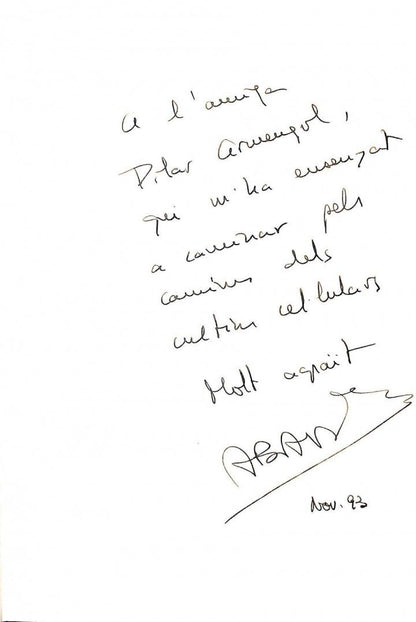 A l'amiga
Pilar Armengol,
qui m'ha ensenyat
a caminar pels
camins dels
cultius cel·lulars
Molt agraït
ABAD
Nov. 93